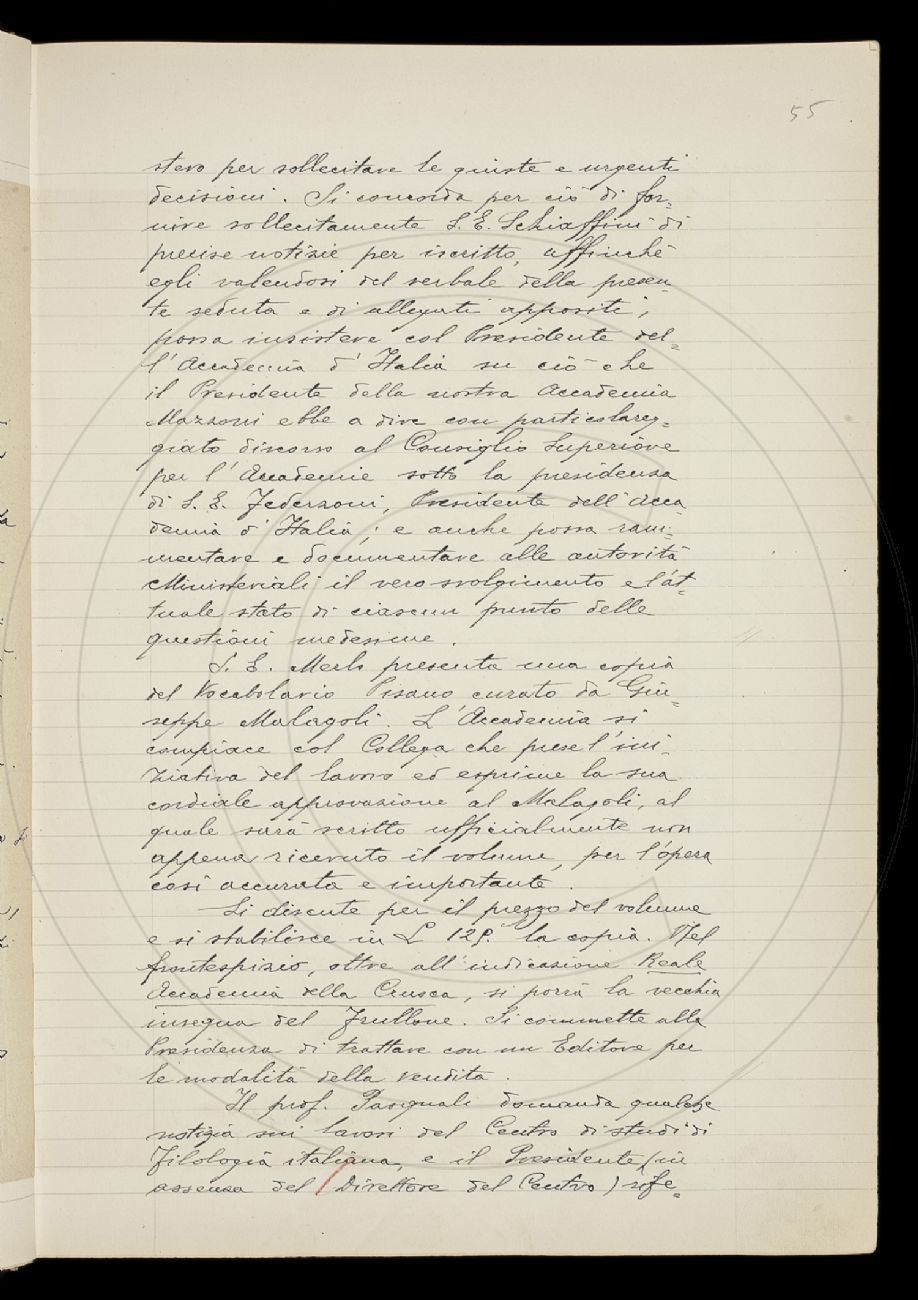 55
stero per sollecitare le giuste e urgenti
decisioni. Si concorda per ciò di for=
nire sollecitamente S. E. Schiaffini di
precise notizie per iscritto, affinchè
egli valendosi del verbale della presen=
te seduta e di allegati appositi,
possa insistere col Presidente del=
l'Accademia d'Italia su ciò che
il Presidente della nostra Accademia
Mazzoni ebbe a dire con particolareg=
giato discorso al Consiglio Superiore
per l'Accademie sotto la presidenza
di S. E. Federzoni, Presidente dell'Acca
demia d'Italia; e anche possa ram=
mentare e documentare alle autorità
Ministeriali il vero svolgimento e l'at=
tuale stato di ciascun punto delle
questioni medesime.
S. E. Merlo presenta una copia
del Vocabolario Pisano curato da Giu=
seppe Malagoli. L'Accademia si
compiace col Collega che prese l'ini=
ziativa del lavoro ed esprime la sua
cordiale approvazione al Malagoli, al
quale sarà scritto ufficialmente non
appena ricevuto il volume, per l'opera
così accurata e importante.
Si discute per il prezzo del volume
e si stabilisce in L la copia. Nel
frontespizio, oltre all'indicazione Reale
Accademia della Crusca, si porrà la vecchia
insegna del Frullone. Si commette alla
Presidenza di trattare con un Editore per
le modalità della vendita.
Il prof. Pasquali domanda qualche
notizia sui lavori del Centro di studi di
Filologia italiana, e il Presidente (in
assenza del Direttore del Centro) rife=